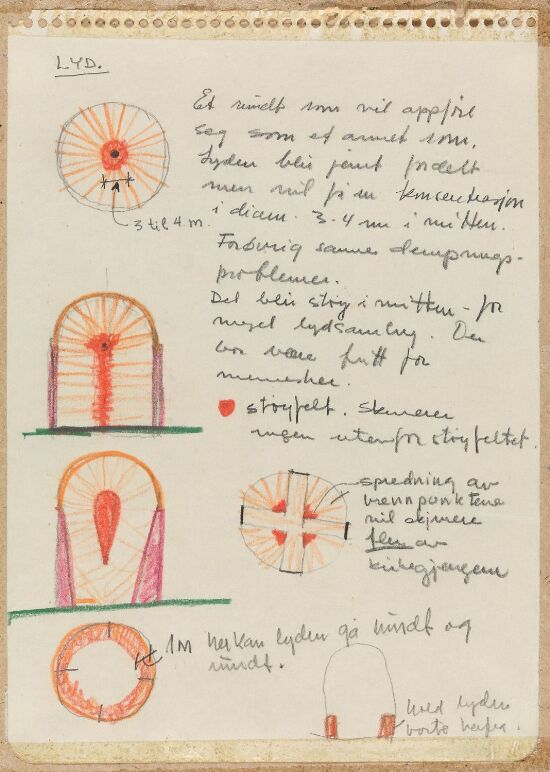 LYD.
Et rundt rom vil oppføre
seg som et annet rom.
Lyden blir jevnt fordelt
men vil få en konsentrasjon
i diam. 3-4 m i midten.
3 til 4 m.
Forøvrig samme dempnings-
problemer.
Det blir støy i midten - for
meget lydsamling. Den
bør være fritt for
mennesker.
støyfelt. Skjemmer
ingen utenfor støyfeltet.
spredning av
brennpunktene
vil skjemme
flere av
kirkegjengerne
1M her kan lyden gå rundt og
rundt.
hold lyden
borte herfra.